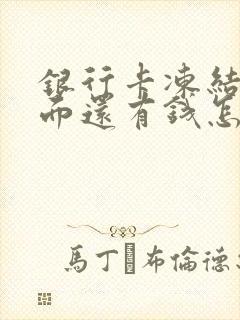 銀行卡凍結
而還有錢怎
馬丁 布倫德